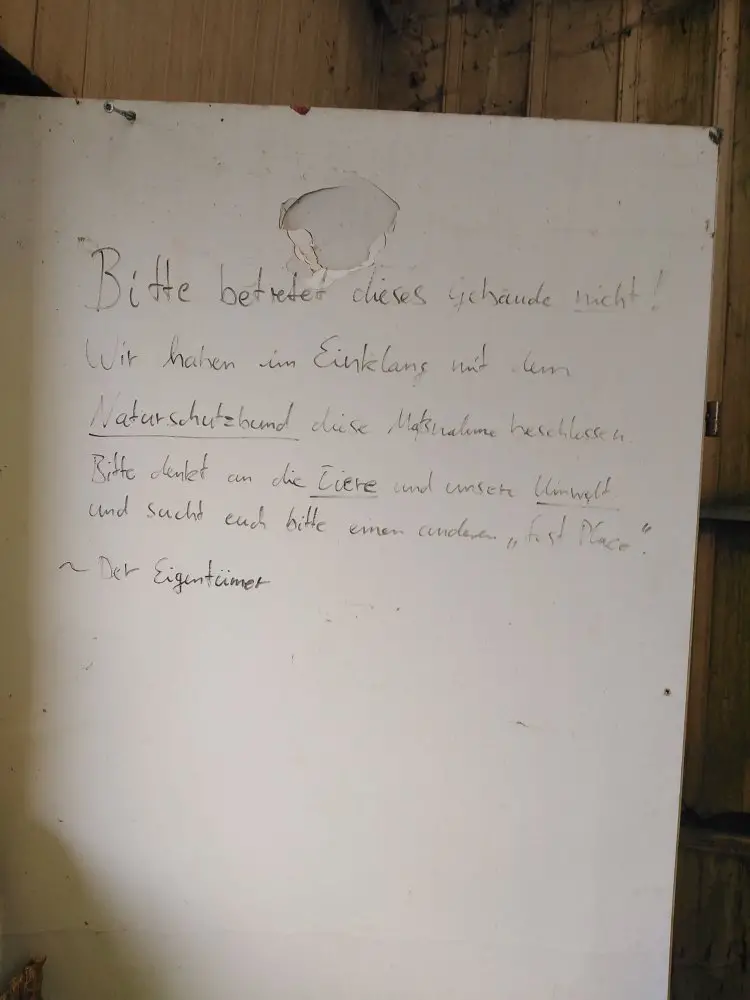 Bitte betretet dieses Gebäude nicht!
Wir haben im Einklang mit dem
Naturschutzbund diese Maßnahme beschlossen.
Bitte denket an die Tiere und unsere Umwelt
und sucht euch bitte einen anderen „ Place“.
~ Der Eigentümer